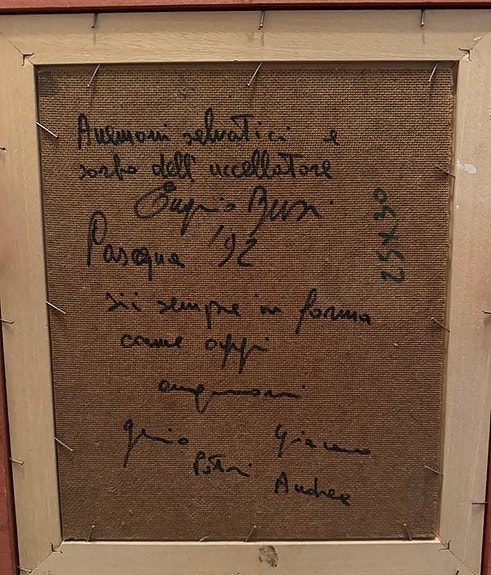 Anemoni selvatici e
sorbo dell' uccellatore
Eugenio Busi
Pasqua '92
25x30
sii sempre in forma
come oggi
auguroni
Giacomo
Andrea